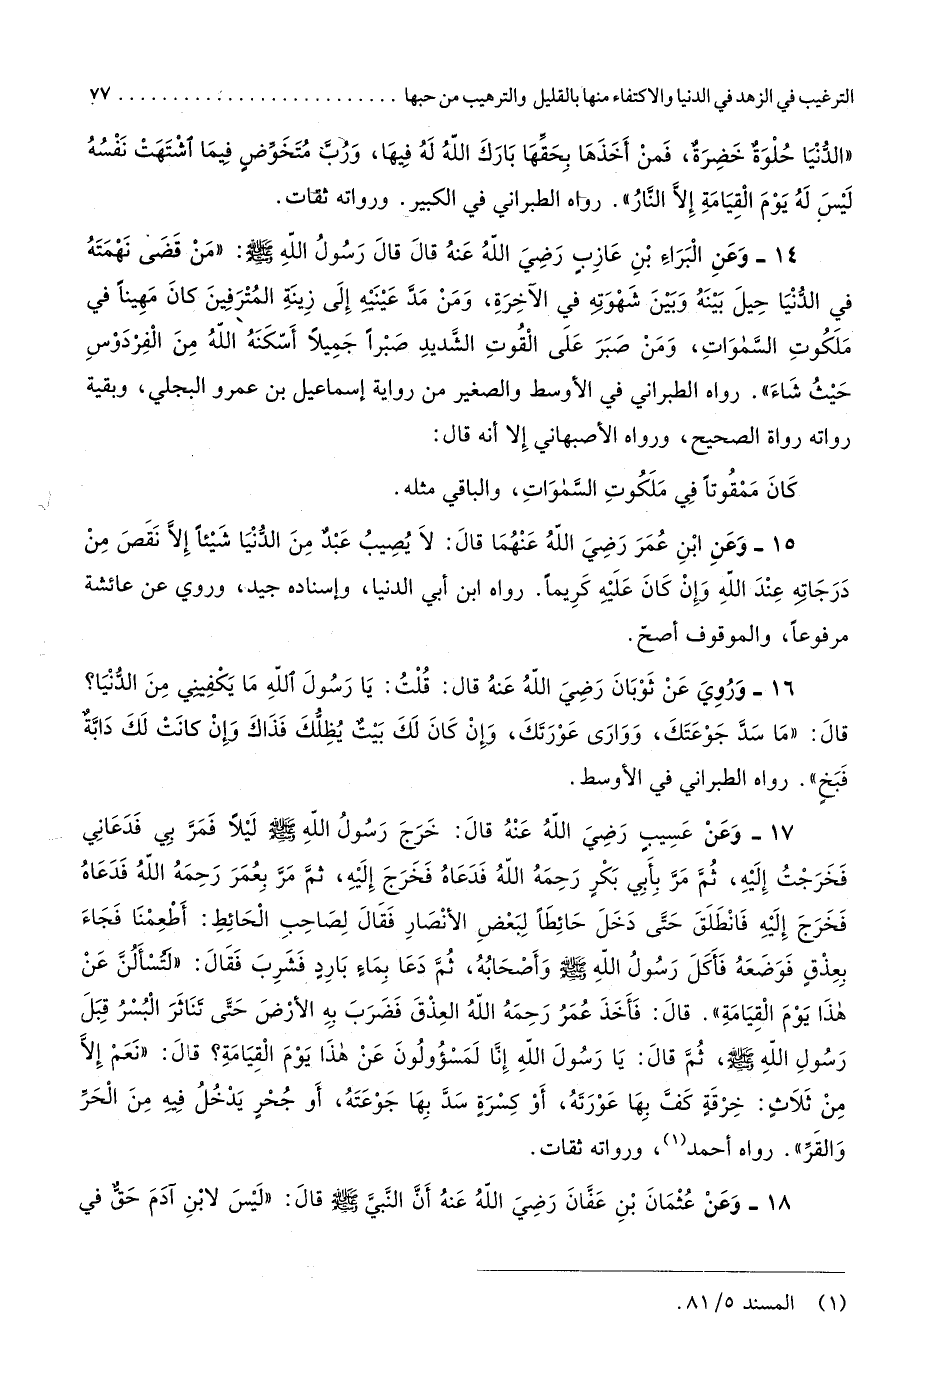 الترغيب في الزهد في الدنيا والاكتفاء منها بالقليل والترهيب من حبها .......................... ٧٧
«الدُّنْيَا حُلْوَةٌ خَضِرَةٌ، فَمنْ أَخَذَهَا بِحَقِّهَا بَارَكَ اللهُ لَهُ فِيهَا، وَرُبَّ مُتَخَوِّضٍ فِيمَا ٱشْتَهَتْ نَفْسُهُ
لَيْسَ لَهُ يَوْمَ الْقِيَامَةِ إِلاَّ النَّارُ». رواه الطبراني في الكبير. ورواته ثقات.
١٤ ـ وَعَنِ الْبَرَاءِ بْنِ عَازِبٍ رَضِيَ اللهُ عَنْهُ قالَ قالَ رَسُولُ اللهِ ﷺ: «مَنْ قَضَى نَهْمَتَهُ
في الدُّنْيَا حِيلَ بَيْنَهُ وَبَيْنَ شَهْوَتِهِ في الآخِرَةِ، وَمَنْ مَدَّ عَيْنَيْهِ إِلَى زِينَةِ المُتْرَفِينَ كانَ مَهِيناً في
مَلَكُوتِ السَّمٰوَاتِ، وَمَنْ صَبَرَ عَلَى الْقُوتِ الشَّدِيدِ صَبْراً جَمِيلاً أَسْكَنَهُ اللهُ مِنَ الْفِرْدَوْسِ
حَيْثُ شَاءَ». رواه الطبراني في الأوسط والصغير من رواية إسماعيل بن عمرو البجلي، وبقية
رواته رواة الصحيح، ورواه الأصبهاني إلا أنه قال:
كَانَ مَمْقُوتاً فِي مَلَكُوتِ السَّمٰوَاتِ، والباقي مثله.
١٥ ـ وَعَنِ ابْنِ عُمَرَ رَضِيَ اللهُ عَنْهُمَا قالَ: لاَ يُصِيبُ عَبْدٌ مِنَ الدُّنْيَا شَيْئاً إِلاَّ نَقَصَ مِنْ
دَرَجَاتِهِ عِنْدَ اللهِ وَإِنْ كَانَ عَلَيْهِ كَرِيماً. رواه ابن أبي الدنيا، وإسناده جيد، وروي عن عائشة
مرفوعاً، والموقوف أصحّ.
١٦ ـ وَرُوِيَ عَنْ ثَوْبَانَ رَضِيَ اللهُ عَنهُ قال: قُلْتُ: يَا رَسُولَ اللهِ مَا يَكْفِينِي مِنَ الدُّنْيَا؟
قالَ: «مَا سَدَّ جَوْعَتَكَ، وَوَارَى عَوْرَتَكَ، وَإِنْ كَانَ لَكَ بَيْتٌ يُظِلُّكَ فَذَاكَ وَإِنْ كانَتْ لَكَ دَابَّةٌ
فَبَخٍ». رواه الطبراني في الأوسط.
١٧ ـ وَعَنْ عَسِيبٍ رَضِيَ اللهُ عَنْهُ قالَ: خَرَجَ رَسُولُ اللهِ ﷺ لَيْلاً فَمَرَّ بِي فَدَعَانِي
فَخَرَجْتُ إِلَيْهِ، ثُمَّ مَرَّ بِأَبِي بَكْرٍ رَحِمَهُ اللهُ فَدَعَاهُ فَخَرَجَ إِلَيْهِ، ثمَّ مَرَّ بِعُمَرَ رَحِمَهُ اللهُ فَدَعَاهُ
فَخَرَجَ إِلَيْهِ فَانْطَلَقَ حَتَّى دَخَلَ حَائِطَاً لِبَعْضِ الأَنْصَارِ فَقَالَ لِصَاحِبِ الْحَائِطِ: أَطْعِمْنَا فَجَاءَ
بِعِذْقٍ فَوَضَعَهُ فَأَكَلَ رَسُولُ اللهِ ﷺ وَأَصْحَابُهُ، ثُمَّ دَعَا بِمَاءٍ بَارِدٍ فَشَرِبَ فَقَالَ: «لَتُسْأَلُنَّ عَنْ
هٰذَا يَوْمَ الْقِيَامَةِ». قالَ: فَأَخَذَ عُمَرُ رَحِمَهُ اللهُ العِذْقَ فَضَرَبَ بِهِ الأَرْضَ حَتَّى تَنَاثَرَ الْبُسْرُ قِبَلَ
رَسُولِ اللهِ ﷺ، ثُمَّ قالَ: يا رَسُولَ اللهِ إِنَّا لَمَسْؤُولُونَ عَنْ هٰذَا يَوْمَ الْقِيَامَةِ؟ قالَ: «نَعَمْ إِلاَّ
مِنْ ثَلاَثٍ: خِرْقَةٍ كَفَّ بِهَا عَوْرَتَهُ، أَوْ كِسْرَةٍ سَدَّ بِهَا جَوْعَتَهُ، أَو جُحْرٍ يَدْخُلُ فِيهِ مِنَ الْحَرِّ
وَالقَرِّ». رواه أحمد(١)، ورواته ثقات.
١٨ ـ وَعَنْ عُثْمَانَ بْنِ عَفَّانَ رَضِيَ اللهُ عَنهُ أَنَّ النَّبيَّ ﷺ قالَ: «لَيْسَ لابْنِ آدَمَ حَقٌّ في
(١) المسند ٥/ ٨١.